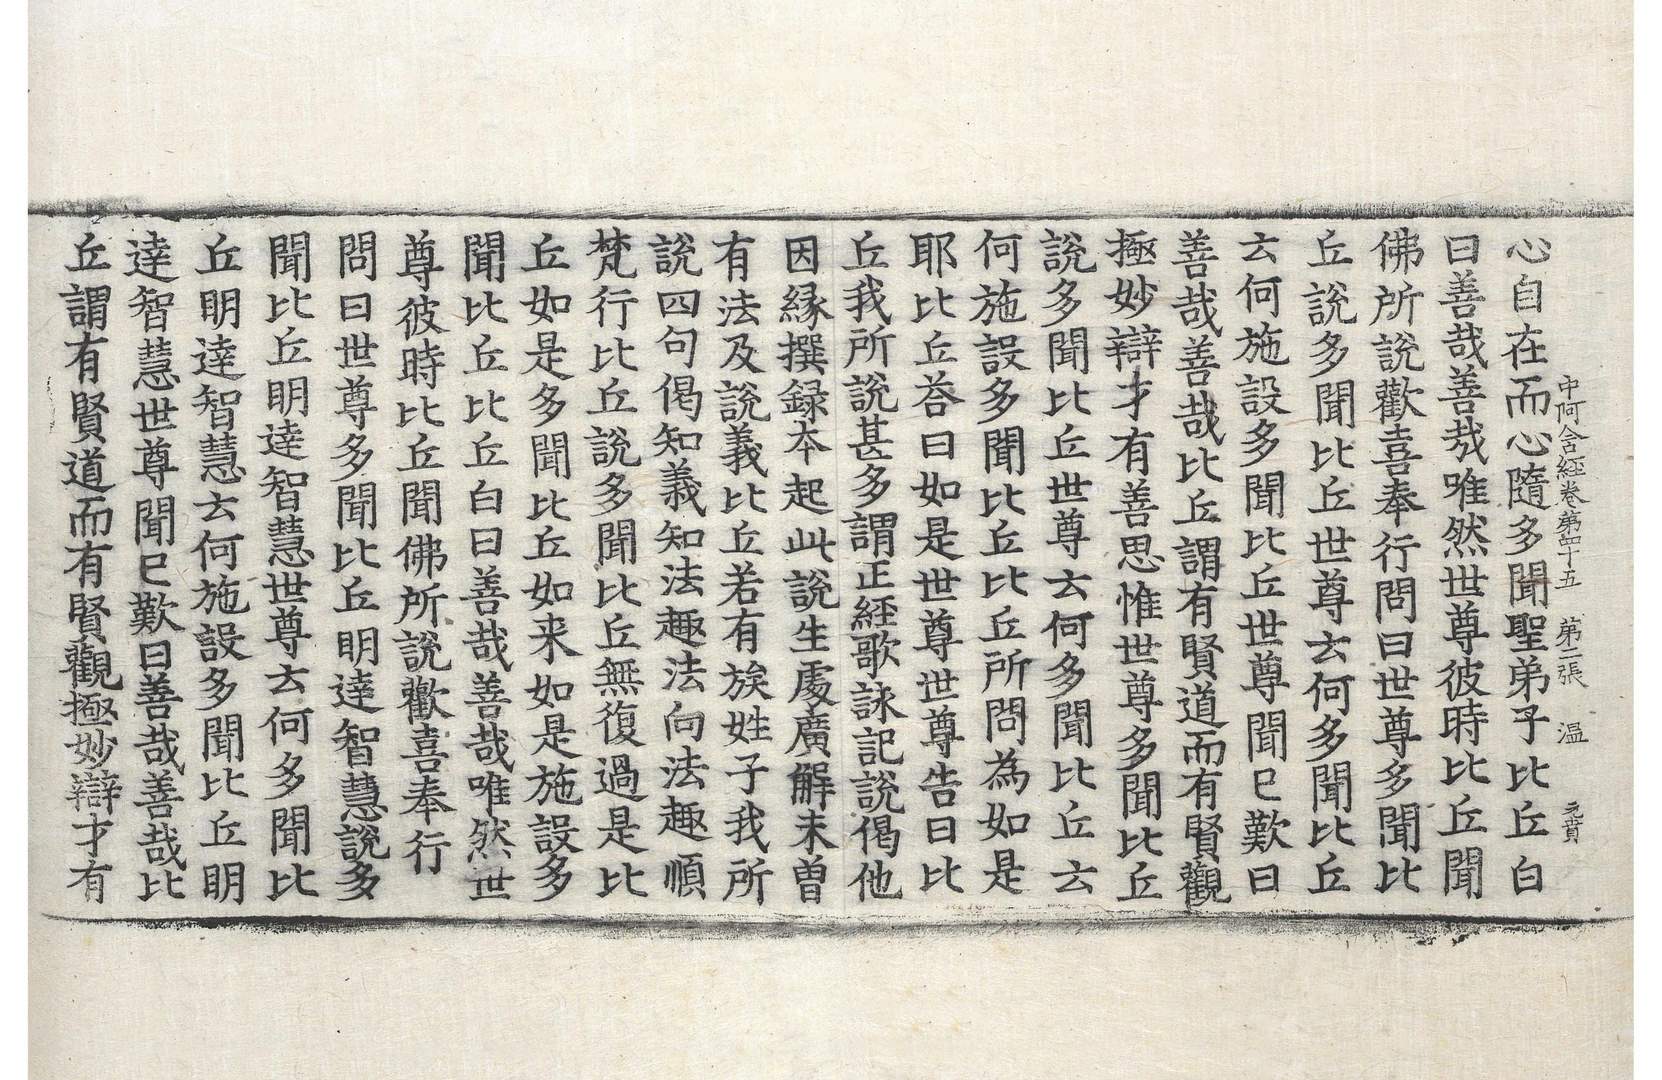 中阿含經卷第四十五　第二張　温　元賁
心自在而心隨多聞聖弟子比丘白
曰善哉善哉唯然世尊彼時比丘聞
佛所說歡喜奉行問曰世尊多聞比
丘說多聞比丘世尊云何多聞比丘
云何施設多聞比丘世尊聞已歎曰
善哉善哉比丘謂有賢道而有賢觀
極妙辯才有善思惟世尊多聞比丘
說多聞比丘世尊云何多聞比丘云
何施設多聞比丘比丘所問為如是
耶比丘荅曰如是世尊世尊告曰比
丘我所說甚多謂正經歌詠記說偈他
因縁撰録本起此說生處廣解未曾
有法及說義比丘若有族姓子我所
說四句偈知義知法趣法向法趣順
梵行比丘說多聞比丘無復過是比
丘如是多聞比丘如来如是施設多
聞比丘比丘白曰善哉善哉唯然世
尊彼時比丘聞佛所說歡喜奉行
問曰世尊多聞比丘明達智慧說多
聞比丘明達智慧世尊云何多聞比
丘明達智慧云何施設多聞比丘明
達智慧世尊聞已歎曰善哉善哉比
丘謂有賢道而有賢觀極妙辯才有